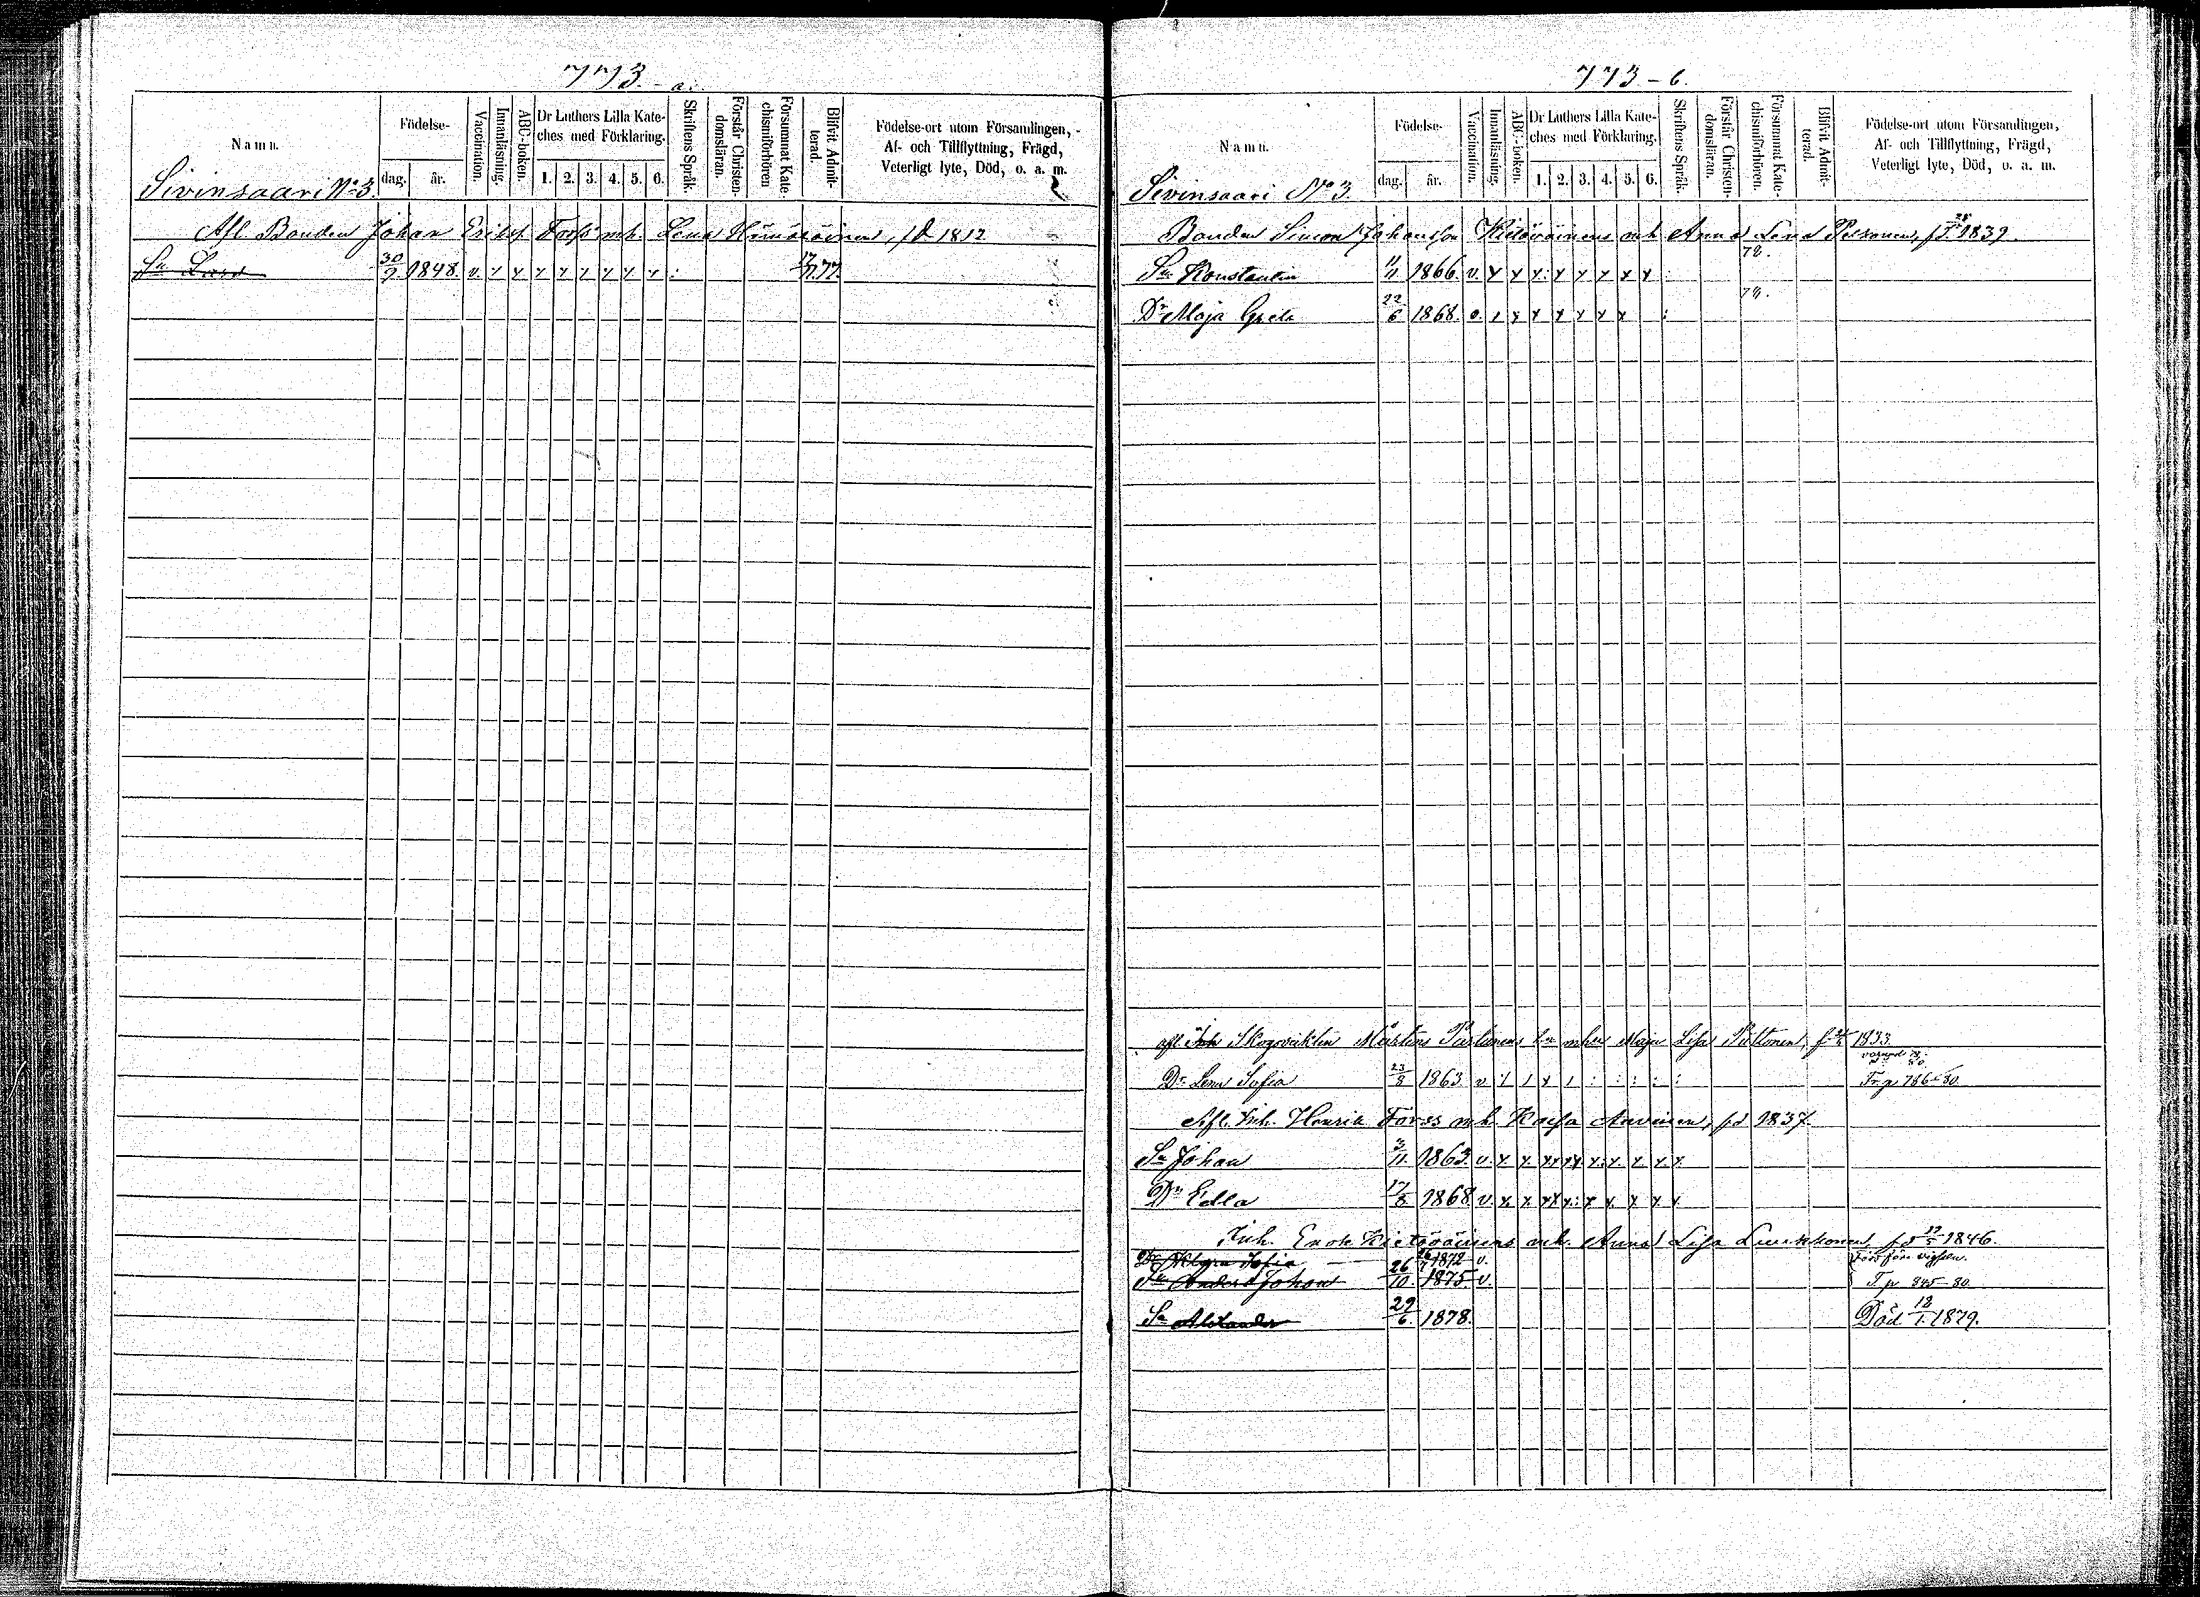 773.-a.
Namn.
Födelse-
dag.
år.
Vaccination.
Innanläsning.
ABC-boken.
Dr Luthers Lilla Kate-
ches med Förklaring.
1. 2. 3. 4. 5. 6.
Skriftens Språk.
Förstår Christen-
domsläran.
Försummat Kate-
chismiförhören
Blifvit Admit-
terad.
Födelse-ort utom Församlingen,
Af- och Tillflyttning, Frägd,
Veterligt lyte, Död, o. a. m.
Sivinsaari No 3.
Afl. Bonden Johan Forss mh. Lena Hämäläinen, fd 1812
Sn Lars 30/9. 1848. v. x x x x x x x x : 17/7.77.
773-b.
Namn.
Födelse-
dag.
år.
Vaccination.
Innanläsning.
ABC-boken.
Dr Luthers Lilla Kate-
ches med Förklaring.
1. 2. 3. 4. 5. 6.
Skriftens Språk.
Förstår Christen-
domsläran.
Försummat Kate-
chismiförhören.
Blifvit Admit-
terad.
Födelse-ort utom Församlingen,
Af- och Tillflyttning, Frägd,
Veterligt lyte, Död, o. a. m.
Sivinsaari No 3.
Bonden Simon Johansson mh Anna Lena Pelkonen, 1839.
78.
Sn Konstantin 11/11 1866. v. x x x: x x x x x :
78.
Dr Maja Greta 22/6 1868. v. x x x x x x x :
afl. Skogsvakten Mårten Partanens mh Maja Lisa 1833
Dr Lena Sofia 23/8 1863 v : : : : :
Tr p 786-80.
Afl. Inh. Henrik Forss mh. Kaisa fd 1837.
Sn Johan 3/11. 1863. v. x. x. xx xx x: x. x. x. x.
Dr Edla 17/8 1868 v. x. x. xx x: x x. x x x.
Inh. Enok mh. Anna Lisa Luukkonen, fd 12/5 1846.
Dr Sofia 1872 v. Född före vigseln.
Sn Anders Johan 26/10. 1875 v. T. p 845-80.
Sn Alexander 29/6. 1878. Död 18/1. 1879.